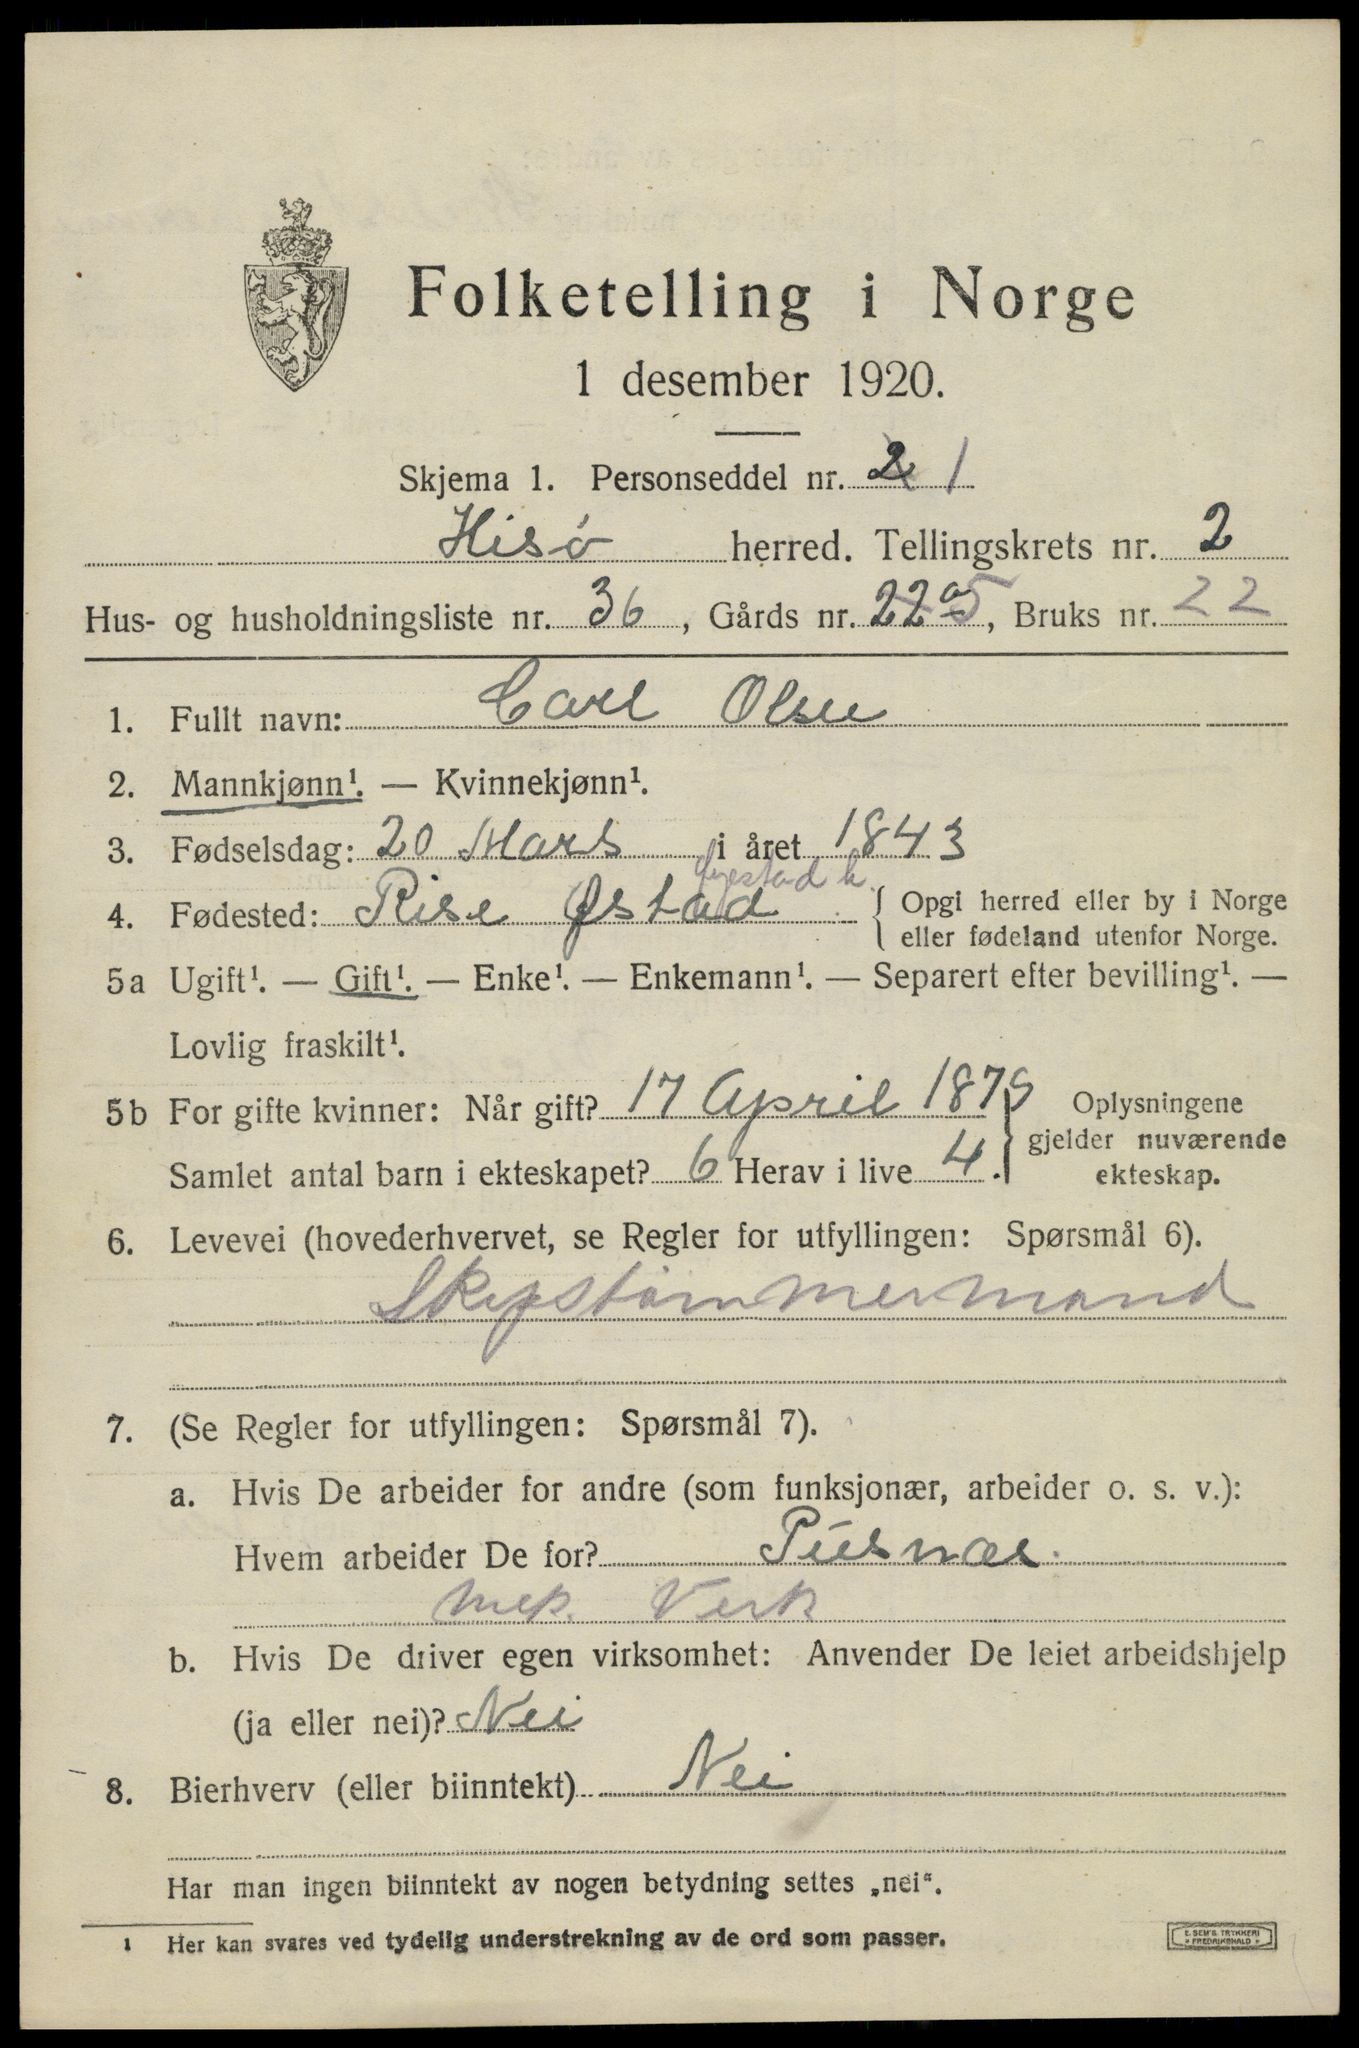 Folketelling i Norge
1 desember 1920.
Skjema 1. Personseddel nr. 2 1
Hisø herred. Tellingskrets nr. 2
Hus- og husholdningsliste nr. 36, Gårds nr. 22a 5, Bruks nr. 22
1. Fullt navn: Carl Olsen
2. Mannkjønn¹. — Kvinnekjønn¹.
3. Fødselsdag: 20 Mars i året 1843
4. Fødested: Rise Østad { Opgi herred eller by i Norge
eller fødeland utenfor Norge.
5a Ugift¹. — Gift¹. — Enke¹. — Enkemann¹. — Separert efter bevilling¹. —
Lovlig fraskilt¹.
5b For gifte kvinner: Når gift? 17 April 1879 Oplysningene
gjelder nuværende
Samlet antal barn i ekteskapet? 6 Herav i live 4. ekteskap.
6. Levevei (hovederhvervet, se Regler for utfyllingen: Spørsmål 6).
Skipstømmermand
7. (Se Regler for utfyllingen: Spørsmål 7).
a. Hvis De arbeider for andre (som funksjonær, arbeider o. s. v.):
Hvem arbeider De for? Pusnæs
mek. Verk
b. Hvis De driver egen virksomhet: Anvender De leiet arbeidshjelp
(ja eller nei)? Nei
8. Bierhverv (eller biinntekt) Nei
Har man ingen biinntekt av nogen betydning settes „nei“.
1 Her kan svares ved tydelig understrekning av de ord som passer.
E. SEM'S TRYKKERI
FREDRIKSHALD